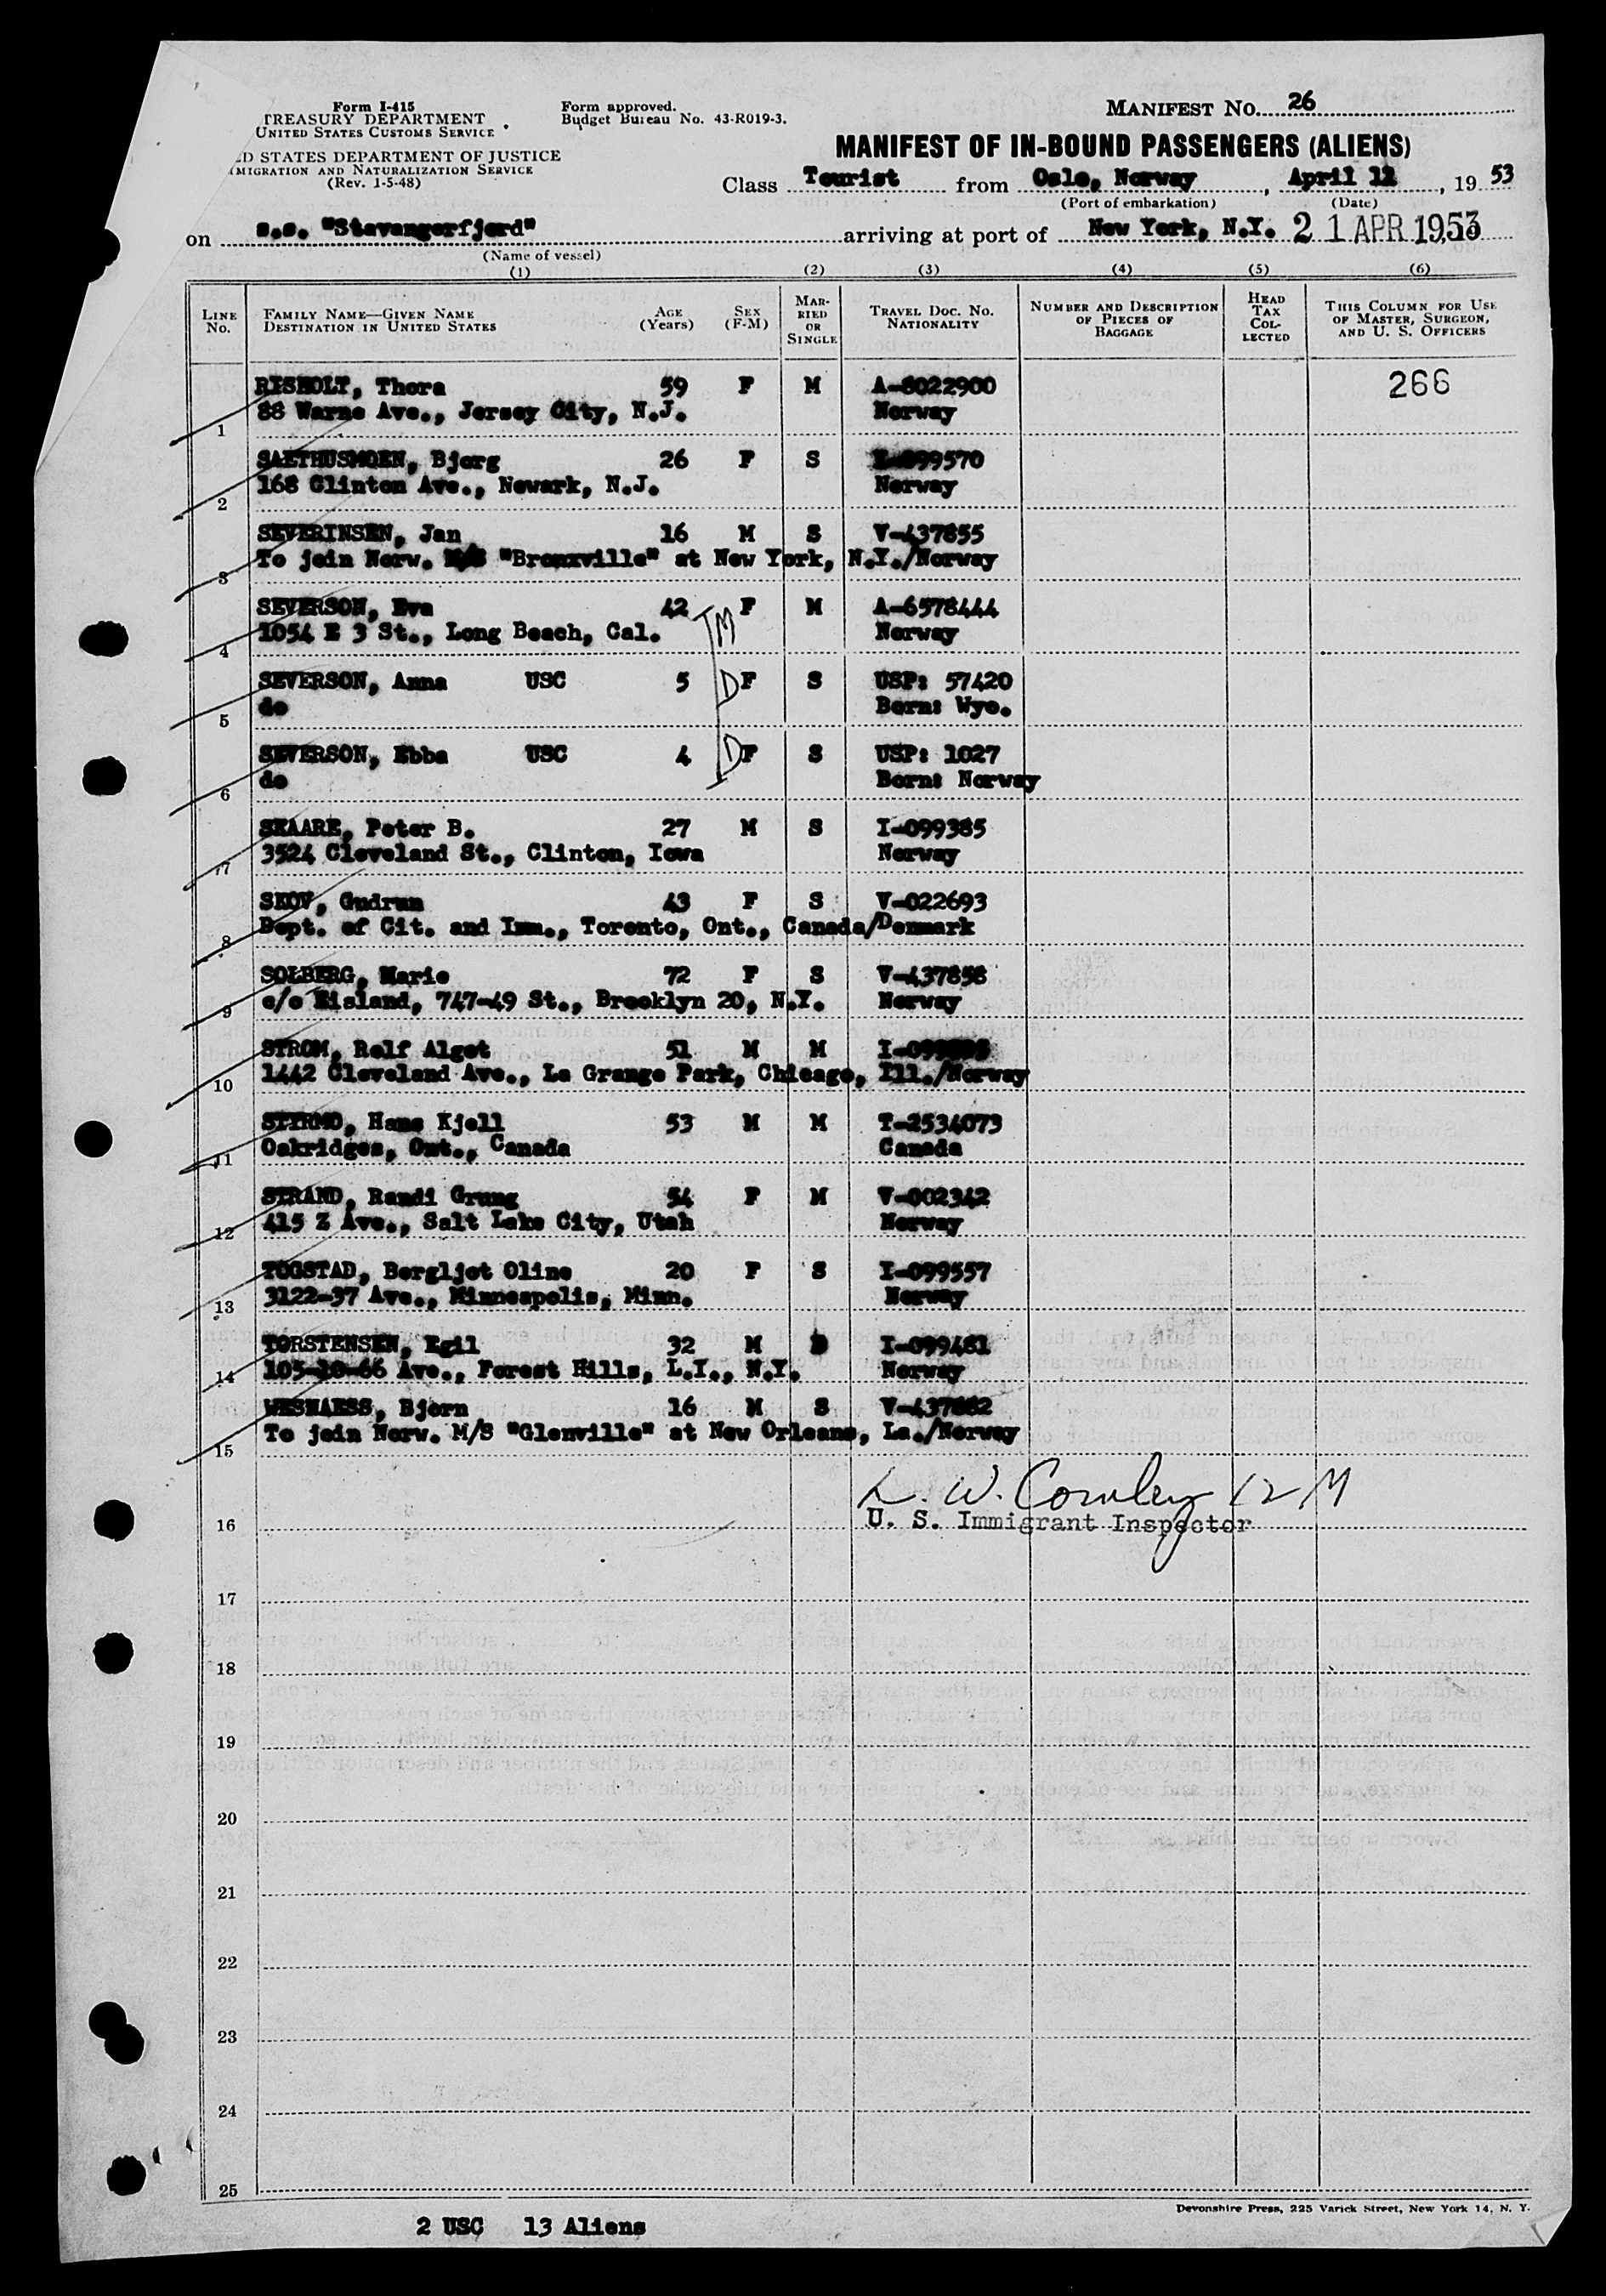 Form I-415
TREASURY DEPARTMENT
UNITED STATES CUSTOMS SERVICE
ED STATES DEPARTMENT OF JUSTICE
MIGRATION AND NATURALIZATION SERVICE
(Rev. 1-5-48)
Form approved.
Budget Bureau No. 43-R019-3.
MANIFEST NO. 26
MANIFEST OF IN-BOUND PASSENGERS (ALIENS)
Class Tourist from Oslo, Norway, April 12, 19 53
(Port of embarkation) (Date)
on s.s. "Stavangerfjord" arriving at port of New York, N.Y. 21 APR 1953
(Name of vessel)
(1) (2) (3) (4) (5) (6)
LINE NO. FAMILY NAME—GIVEN NAME DESTINATION IN UNITED STATES AGE (Years) SEX (F-M) MARRIED OR SINGLE TRAVEL DOC. NO. NATIONALITY NUMBER AND DESCRIPTION OF PIECES OF BAGGAGE HEAD TAX COLLECTED THIS COLUMN FOR USE OF MASTER, SURGEON, AND U. S. OFFICERS
RISHOLT, Thora 59 F M A-6022900 266
1 88 Warne Ave., Jersey City, N.J. Norway
SAETHUSMOEN, Bjorg 26 F S 099570
2 168 Clinton Ave., Newark, N.J. Norway
SEVERINSEN, Jan 16 M S V-437855
3 To join Norw. M/S "Bronxville" at New York, N.Y./Norway
SEVERSON, Eva 42 M F M A-6578444
4 1054 E 3 St., Long Beach, Cal. Norway
SEVERSON, Anna USC 5 D F S USP: 57420
5 do Born: Wyo.
SEVERSON, Ebba USC 4 D F S USP: 1027
6 do Born: Norway
SKAARE, Peter B. 27 M S I-099385
7 3524 Cleveland St., Clinton, Iowa Norway
SKOV, Gudrun 43 F S V-022693
8 Dept. of Cit. and Imm., Toronto, Ont., Canada/Denmark
SOLBERG, Marie 72 F S V-437858
9 c/o Eisland, 747-49 St., Brooklyn 20, N.Y. Norway
STROM, Rolf Algot 51 M M
10 1442 Cleveland Ave., La Grange Park, Chicago, Ill./Norway
STYRMO, Hans Kjell 53 M M T-2534073
11 Oakridges, Ont., Canada Canada
STRAND, Randi Grung 54 F M V-002342
12 415 Z Ave., Salt Lake City, Utah Norway
TOGSTAD, Bergljot Oline 20 F S I-099557
13 3122-37 Ave., Minneapolis, Minn. Norway
TORSTENSEN, Egil 32 M D I-099461
14 105-10-66 Ave., Forest Hills, L.I., N.Y. Norway
WESNAESS, Bjorn 16 M S V-437882
15 To join Norw. M/S "Glenville" at New Orleans, La./Norway
L. W. Cornley 12 M
16 U. S. Immigrant Inspector
17
18
19
20
21
22
23
24
25
Devonshire Press, 225 Varick Street, New York 14, N. Y.
2 USC 13 Aliens